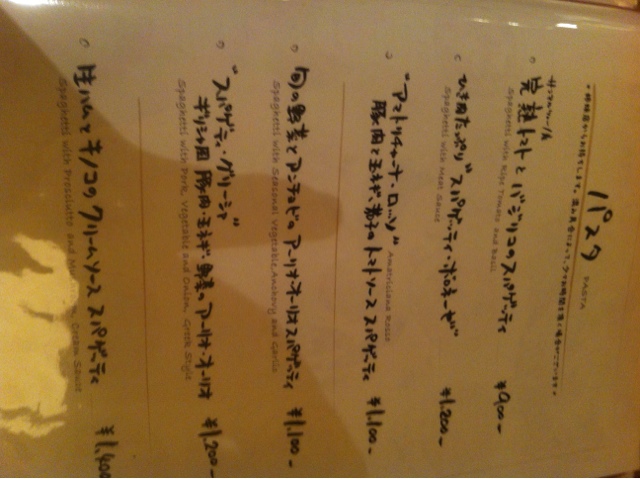 パスタ PASTA
サンマルツァーノ
完熟トマトとバジリコのスパゲッティ ¥900-
Spaghetti with Ripe Tomato and Basil
ひき肉たっぷり"スパゲッティ・ボロネーゼ" ¥1,200-
Spaghetti with Meat Sauce
"アマトリチャーナ・ロッソ" Amatriciana Rosso
豚肉と玉ネギ、茄子のトマトソーススパゲッティ ¥1,100-
旬の野菜とアンチョビのアーリオ・オーリオスパゲッティ ¥1,100-
Spaghetti with Seasonal Vegetable, Anchovy and Garlic
"スパゲティ・グリーシャ"
ギリシャ風 豚肉・玉ネギ・野菜のアーリオ・オーリオ ¥1,200-
Spaghetti with Pork, Vegetable and Onion, Greek Style
生ハムとキノコのクリームソーススパゲッティ ¥1,400
Spaghetti with Prosciutto and Cream Sauce